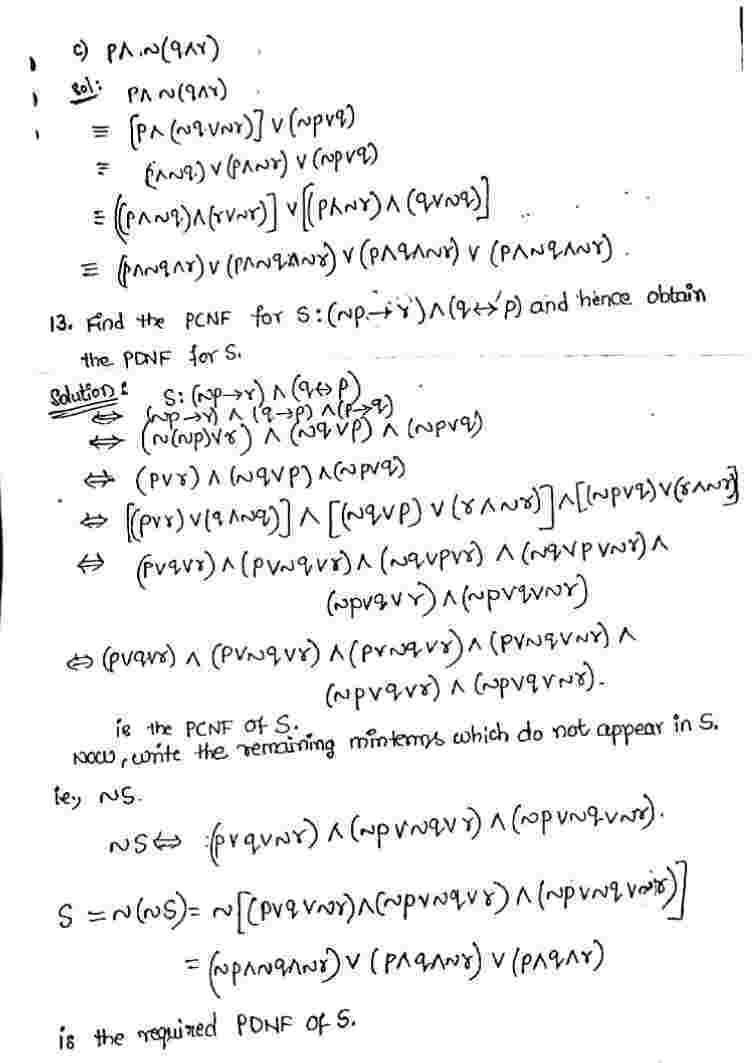 c) p∧~(q∧r)
Sol: p∧~(q∧r)
≡ [p∧(~q∨~r)]∨(~p∨q)
≡ (p∧~q)∨(p∧~r)∨(~p∨q)
≡ [(p∧~q)∧(r∨~r)]∨[(p∧~r)∧(q∨~q)]
≡ (p∧~q∧r)∨(p∧~q∧~r)∨(p∧q∧~r)∨(p∧~q∧~r).
13. Find the PCNF for S:(~p→r)∧(q↔p) and hence obtain
the PDNF for S.
Solution: S:(~p→r)∧(q↔p)
⇔ (~p→r)∧(q→p)∧(p→q)
⇔ (~(~p)∨r)∧(~q∨p)∧(~p∨q)
⇔ (p∨r)∧(~q∨p)∧(~p∨q)
⇔ [(p∨r)∨(q∧~q)]∧[(~q∨p)∨(r∧~r)]∧[(~p∨q)∨(r∧~r)]
⇔ (p∨q∨r)∧(p∨~q∨r)∧(~q∨p∨r)∧(~q∨p∨~r)∧
(~p∨q∨r)∧(~p∨q∨~r)
⇔ (p∨q∨r)∧(p∨~q∨r)∧(p∨~q∨r)∧(p∨~q∨~r)∧
(~p∨q∨r)∧(~p∨q∨~r).
is the PCNF of S.
Now, write the remaining minterms which do not appear in S.
ie, ~S.
~S⇔ (p∨q∨~r)∧(~p∨~q∨r)∧(~p∨~q∨~r).
S = ~(~S) = ~[(p∨q∨~r)∧(~p∨~q∨r)∧(~p∨~q∨~r)]
= (~p∧~q∧~r)∨(p∧q∧~r)∨(p∧q∧r)
is the required PDNF of S.